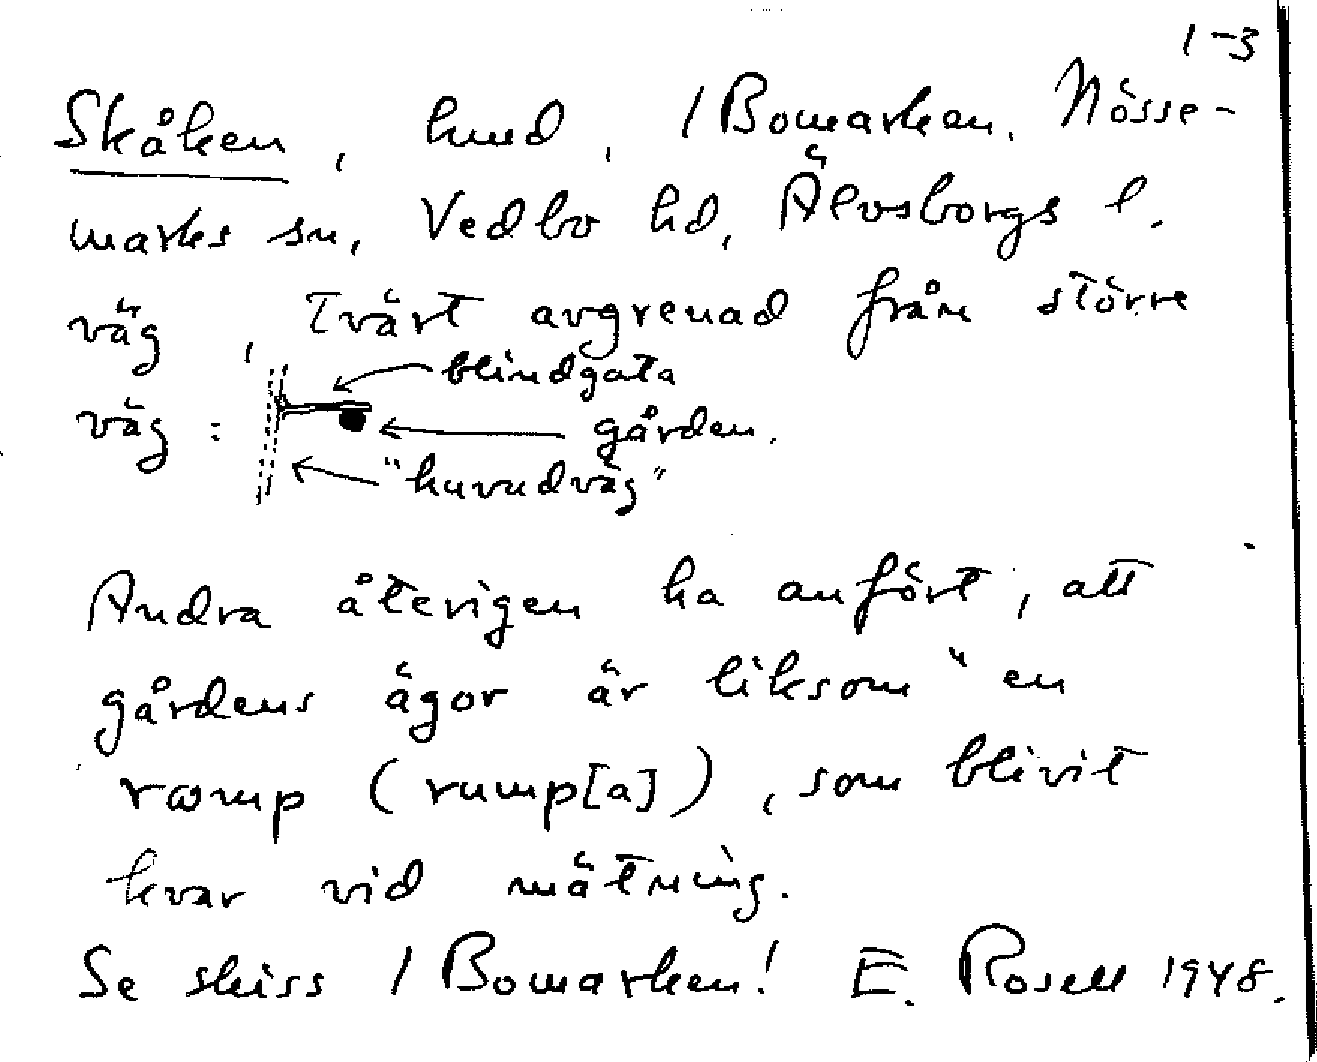 1-3
Skåken, hmd, 1 Bomarken. Nösse-
marks sn, Vedbo hd, Älvsborgs l.
väg, tvärt avgrenad från större
blindgata
väg : gården.
"huvudväg"
Andra återigen ha anfört, att
gårdens ägor är liksom "en
romp (rump[a]), som blivit
kvar vid mätning.
Se skiss 1 Bomarken! E. Rosell 1948.